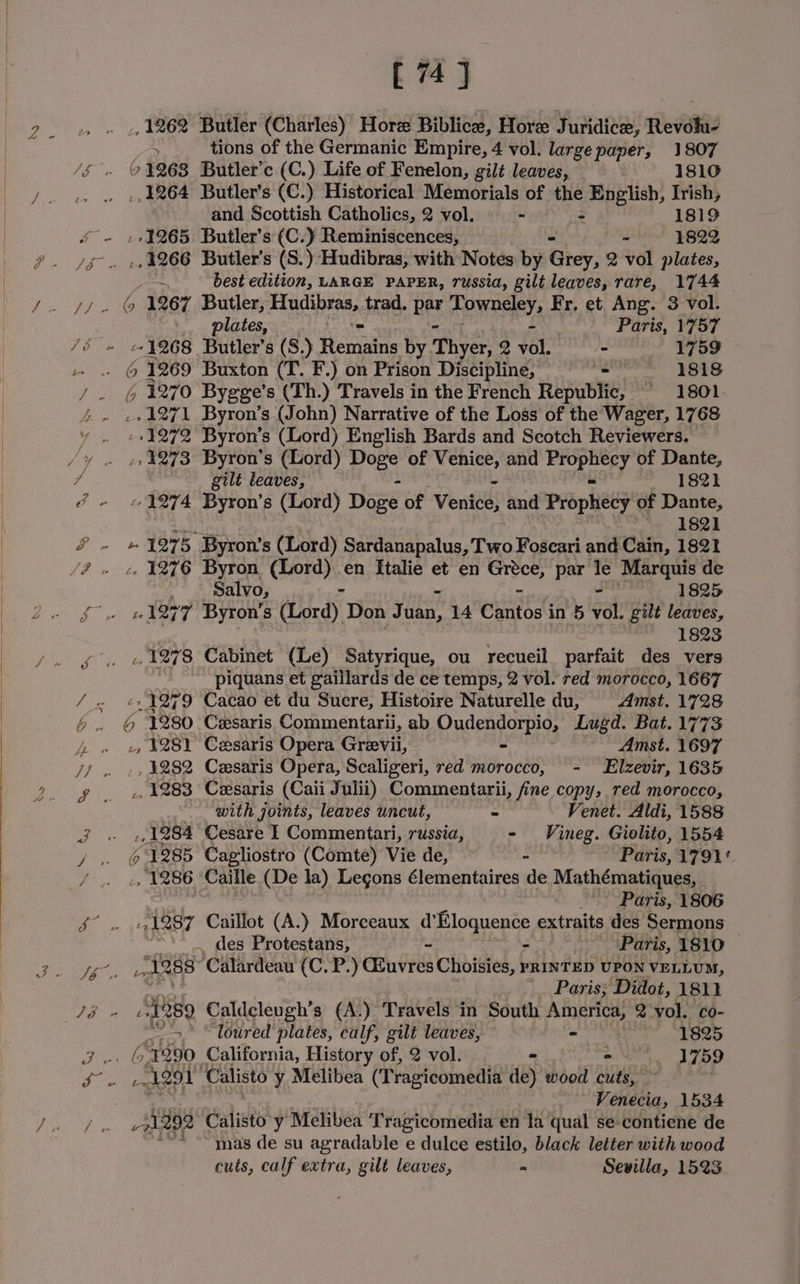 [ 74 ]
1262 Butler (Charles) Horæ Biblicæ, Horæ Juridicæ, Revolu-
tions of the Germanic Empire, 4 vol. large paper, 1807
1263 Butler'c (C.) Life of Fenelon, gilt leaves, 1810
1264 Butler's (C.) Historical Memorials of the English, Irish,
and Scottish Catholics, 2 vol. - - 1819
1265 Butler's (C.) Reminiscences, - - 1822
1266 Butler's (S.) Hudibras, with Notes by Grey, 2 vol plates,
best edition, LARGE PAPER, russia, gilt leaves, rare, 1744
1267 Butler, Hudibras, trad. par Towneley, Fr. et Ang. 3 vol.
plates, - - - Paris, 1757
1268 Butler's (S.) Remains by Thyer, 2 vol. - 1759
1269 Buxton (T. F.) on Prison Discipline, - 1818
1270 Bygge's (Th.) Travels in the French Republic, 1801
1271 Byron's (John) Narrative of the Loss of the Wager, 1768
1272 Byron's (Lord) English Bards and Scotch Reviewers.
1273 Byron's (Lord) Doge of Venice, and Prophecy of Dante,
gilt leaves, - - - 1821
1274 Byron's (Lord) Doge of Venice, and Prophecy of Dante,
1821
1275 Byron's (Lord) Sardanapalus, Two Foscari and Cain, 1821
1276 Byron (Lord) en Italie et en Grèce, par le Marquis de
Salvo, - - - - 1825
1277 Byron's (Lord) Don Juan, 14 Cantos in 5 vol. gilt leaves,
1823
1278 Cabinet (Le) Satyrique, ou recueil parfait des vers
piquans et gaillards de ce temps, 2 vol. red morocco, 1667
1279 Cacao et du Sucre, Histoire Naturelle du, Amst. 1728
1280 Cæsaris Commentarii, ab Oudendorpio, Lugd. Bat. 1773
1281 Cæsaris Opera Grævii, - Amst. 1697
1282 Cæsaris Opera, Scaligeri, red morocco, - Elzevir, 1635
1283 Cæsaris (Caii Julii) Commentarii, fine copy, red morocco,
with joints, leaves uncut, - Venet. Aldi, 1588
1284 Cesare I Commentari, russia, - Vineg. Giolito, 1554
1285 Cagliostro (Comte) Vie de, - Paris, 1791
1286 Caille (De la) Leçons élementaires de Mathématiques,
Paris, 1806
1287 Caillot (A.) Morceaux d'Éloquence extraits des Sermons
des Protestans, - - Paris, 1810
1288 Calardeau (C. P.) Œuvres Choisies, PRINTED UPON VELLUM,
Paris, Didot, 1811
1289 Caldcleugh's (A.) Travels in South America, 2 vol. co-
loured plates, calf, gilt leaves, - 1825
1290 California, History of, 2 vol. - - 1759
1291 Calisto y Melibea (Tragicomedia de) wood cuts,
Venecia, 1534
1292 Calisto y Melibea Tragicomedia en la qual se contiene de
mas de su agradable e dulce estilo, black letter with wood
cuts, calf extra, gilt leaves, - Sevilla, 1523